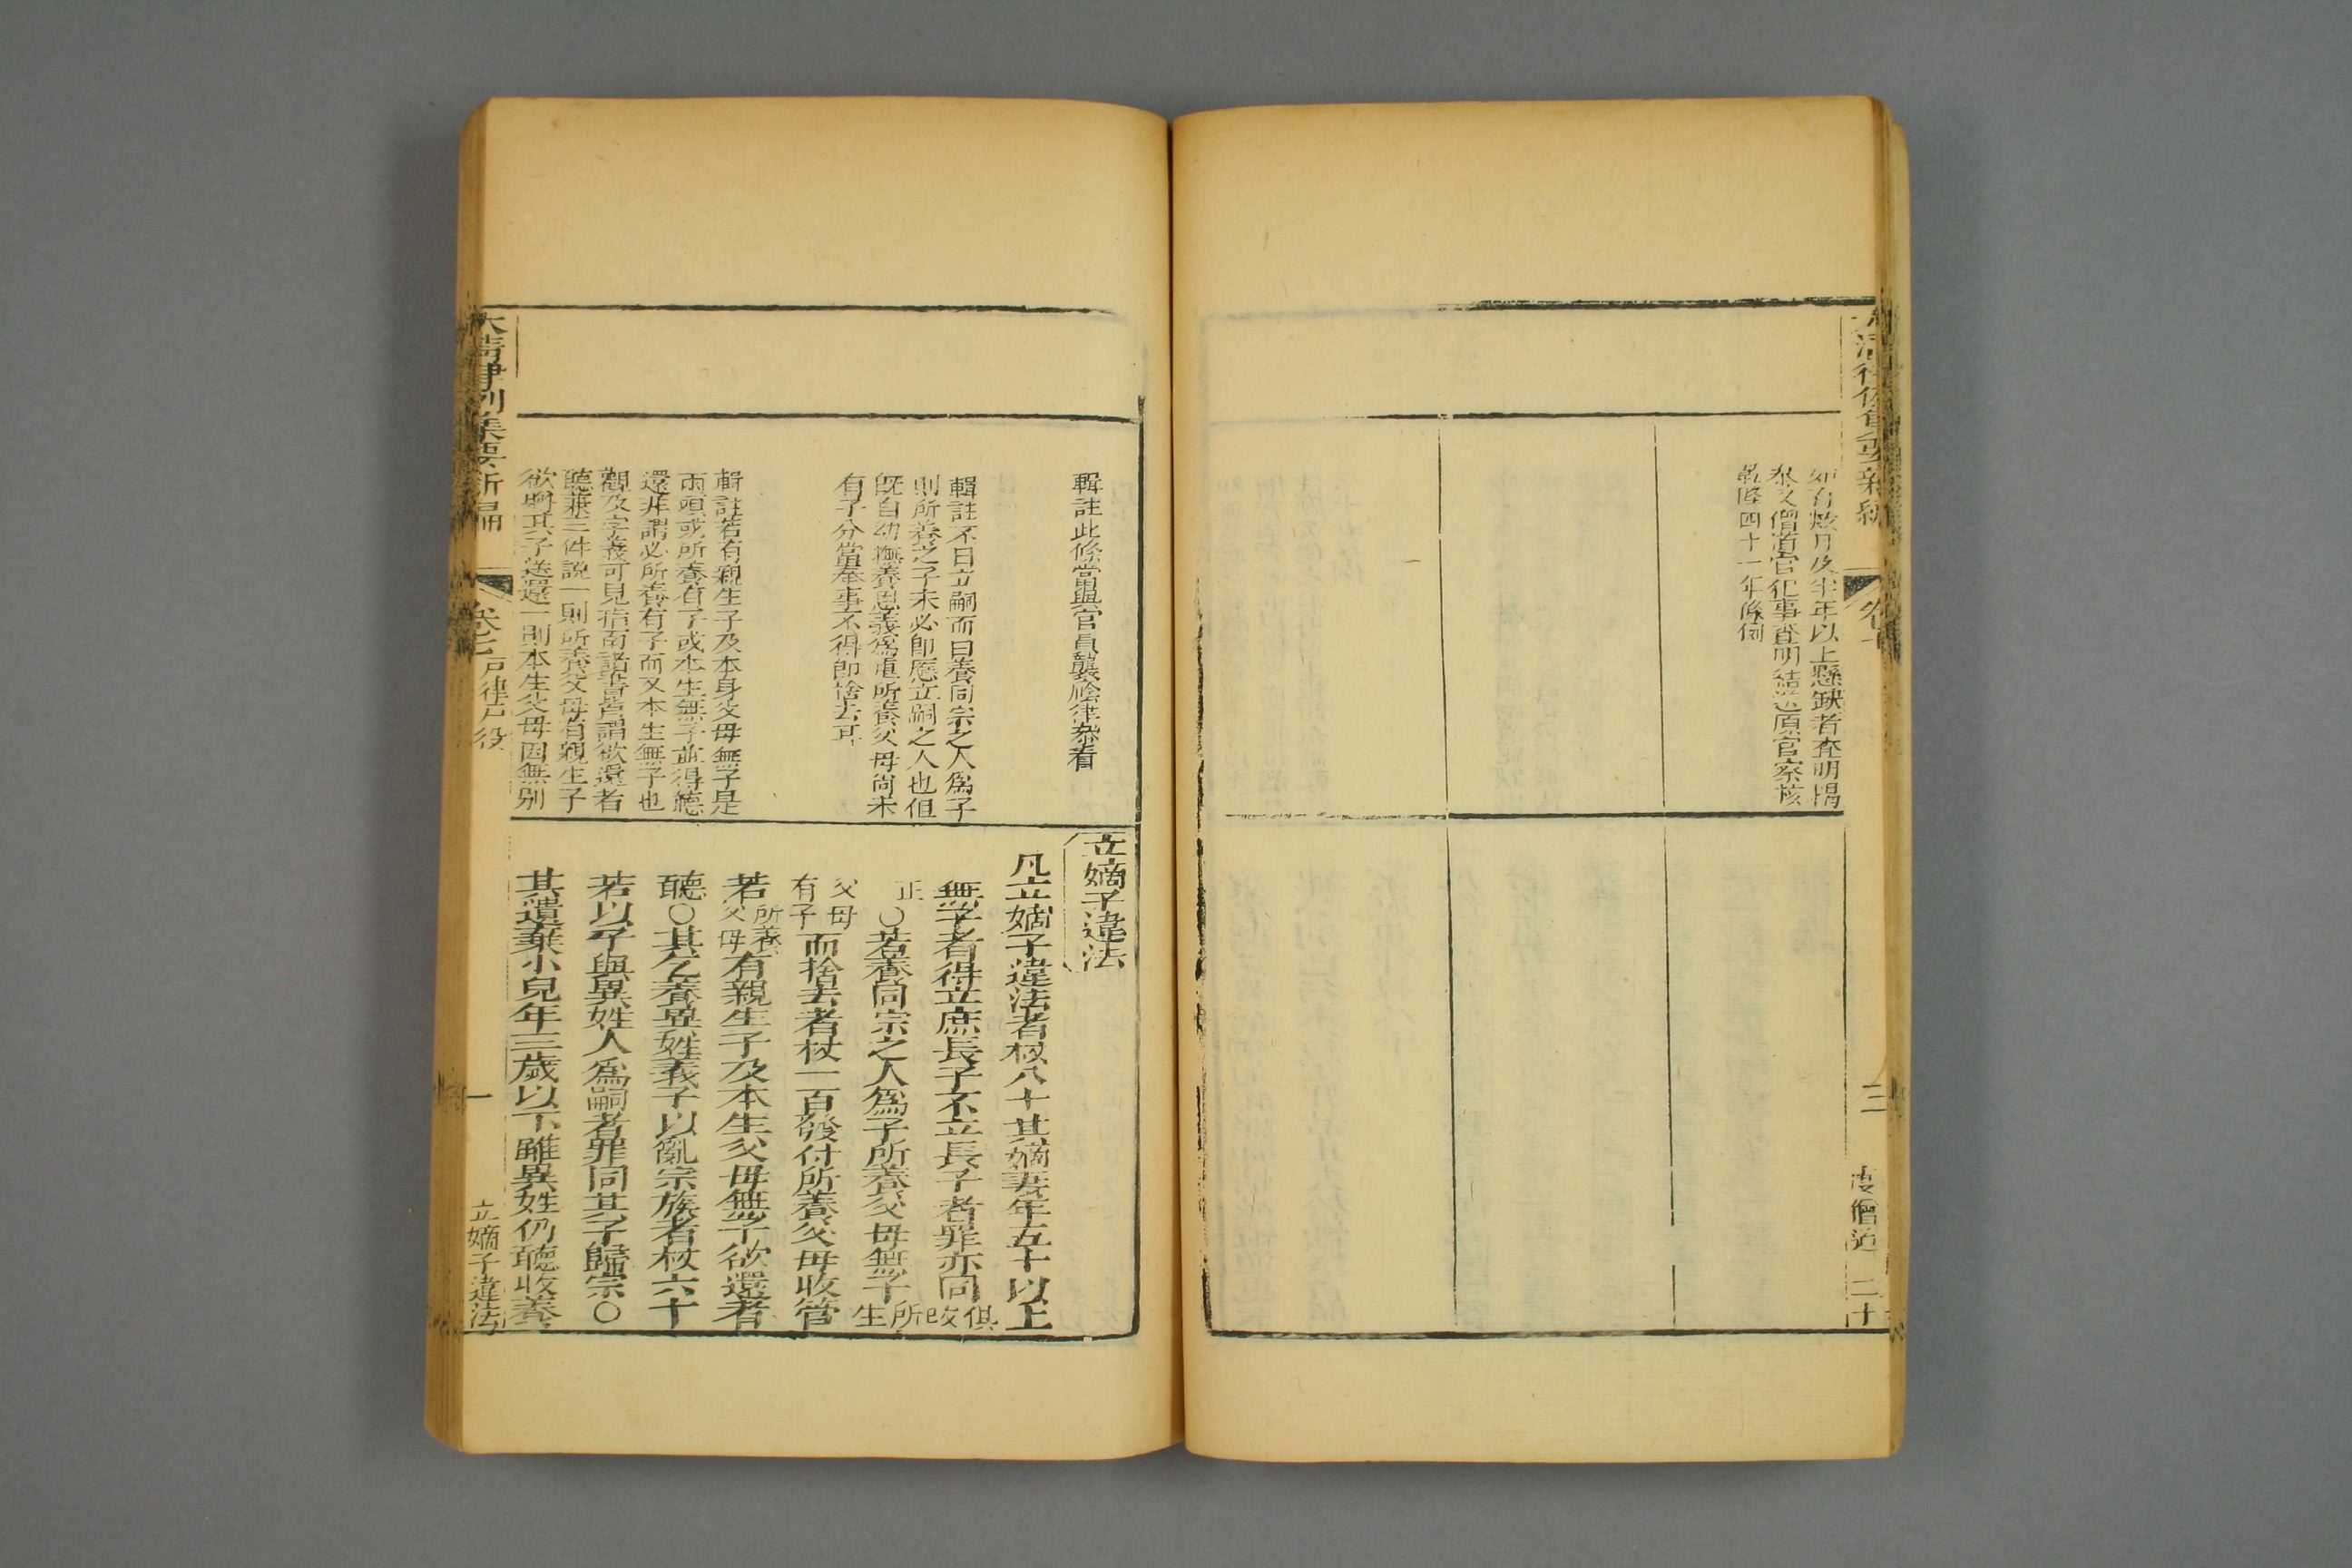 如有數月及半年以上懸缺者查明揭
叅又僧道官犯事查明結送原官察核
乾隆四十一年條例
三
度僧道
二十
輯註此條當與官員襲廕律叅看
輯註不曰立嗣而曰養同宗之人爲子
則所養之子未必卽應立嗣之人也但
旣自幼撫養恩義爲重所養父母尚未
有子分當奉事不得卽捨去耳
輯註若有親生子及本身父母無子是
兩頭或所養有子或本生無子並得聽
還非謂必所養有子而又本生無子也
觀及字義可見指南諸書皆謂欲還者
聽兼三件說一則所養父母有親生子
欲將其子送還一則本生父母因無别
立嫡子違法
凡立嫡子違法者杖八十其嫡妻年五十以上
無子者得立庶長子不立長子者罪亦同俱改
正○若養同宗之人爲子所養父母無子所生
父母有子而捨去者杖一百發付所養父母收管
若所養父母有親生子及本生父母無子欲還者
聽○其乞養異姓義子以亂宗族者杖六十
若以子與異姓人爲嗣者罪同其子歸宗○
其遺棄小兒年三歲以下雖異姓仍聽收養
大清律例集要新編
卷七
戸律戸役
一
立嫡子違法